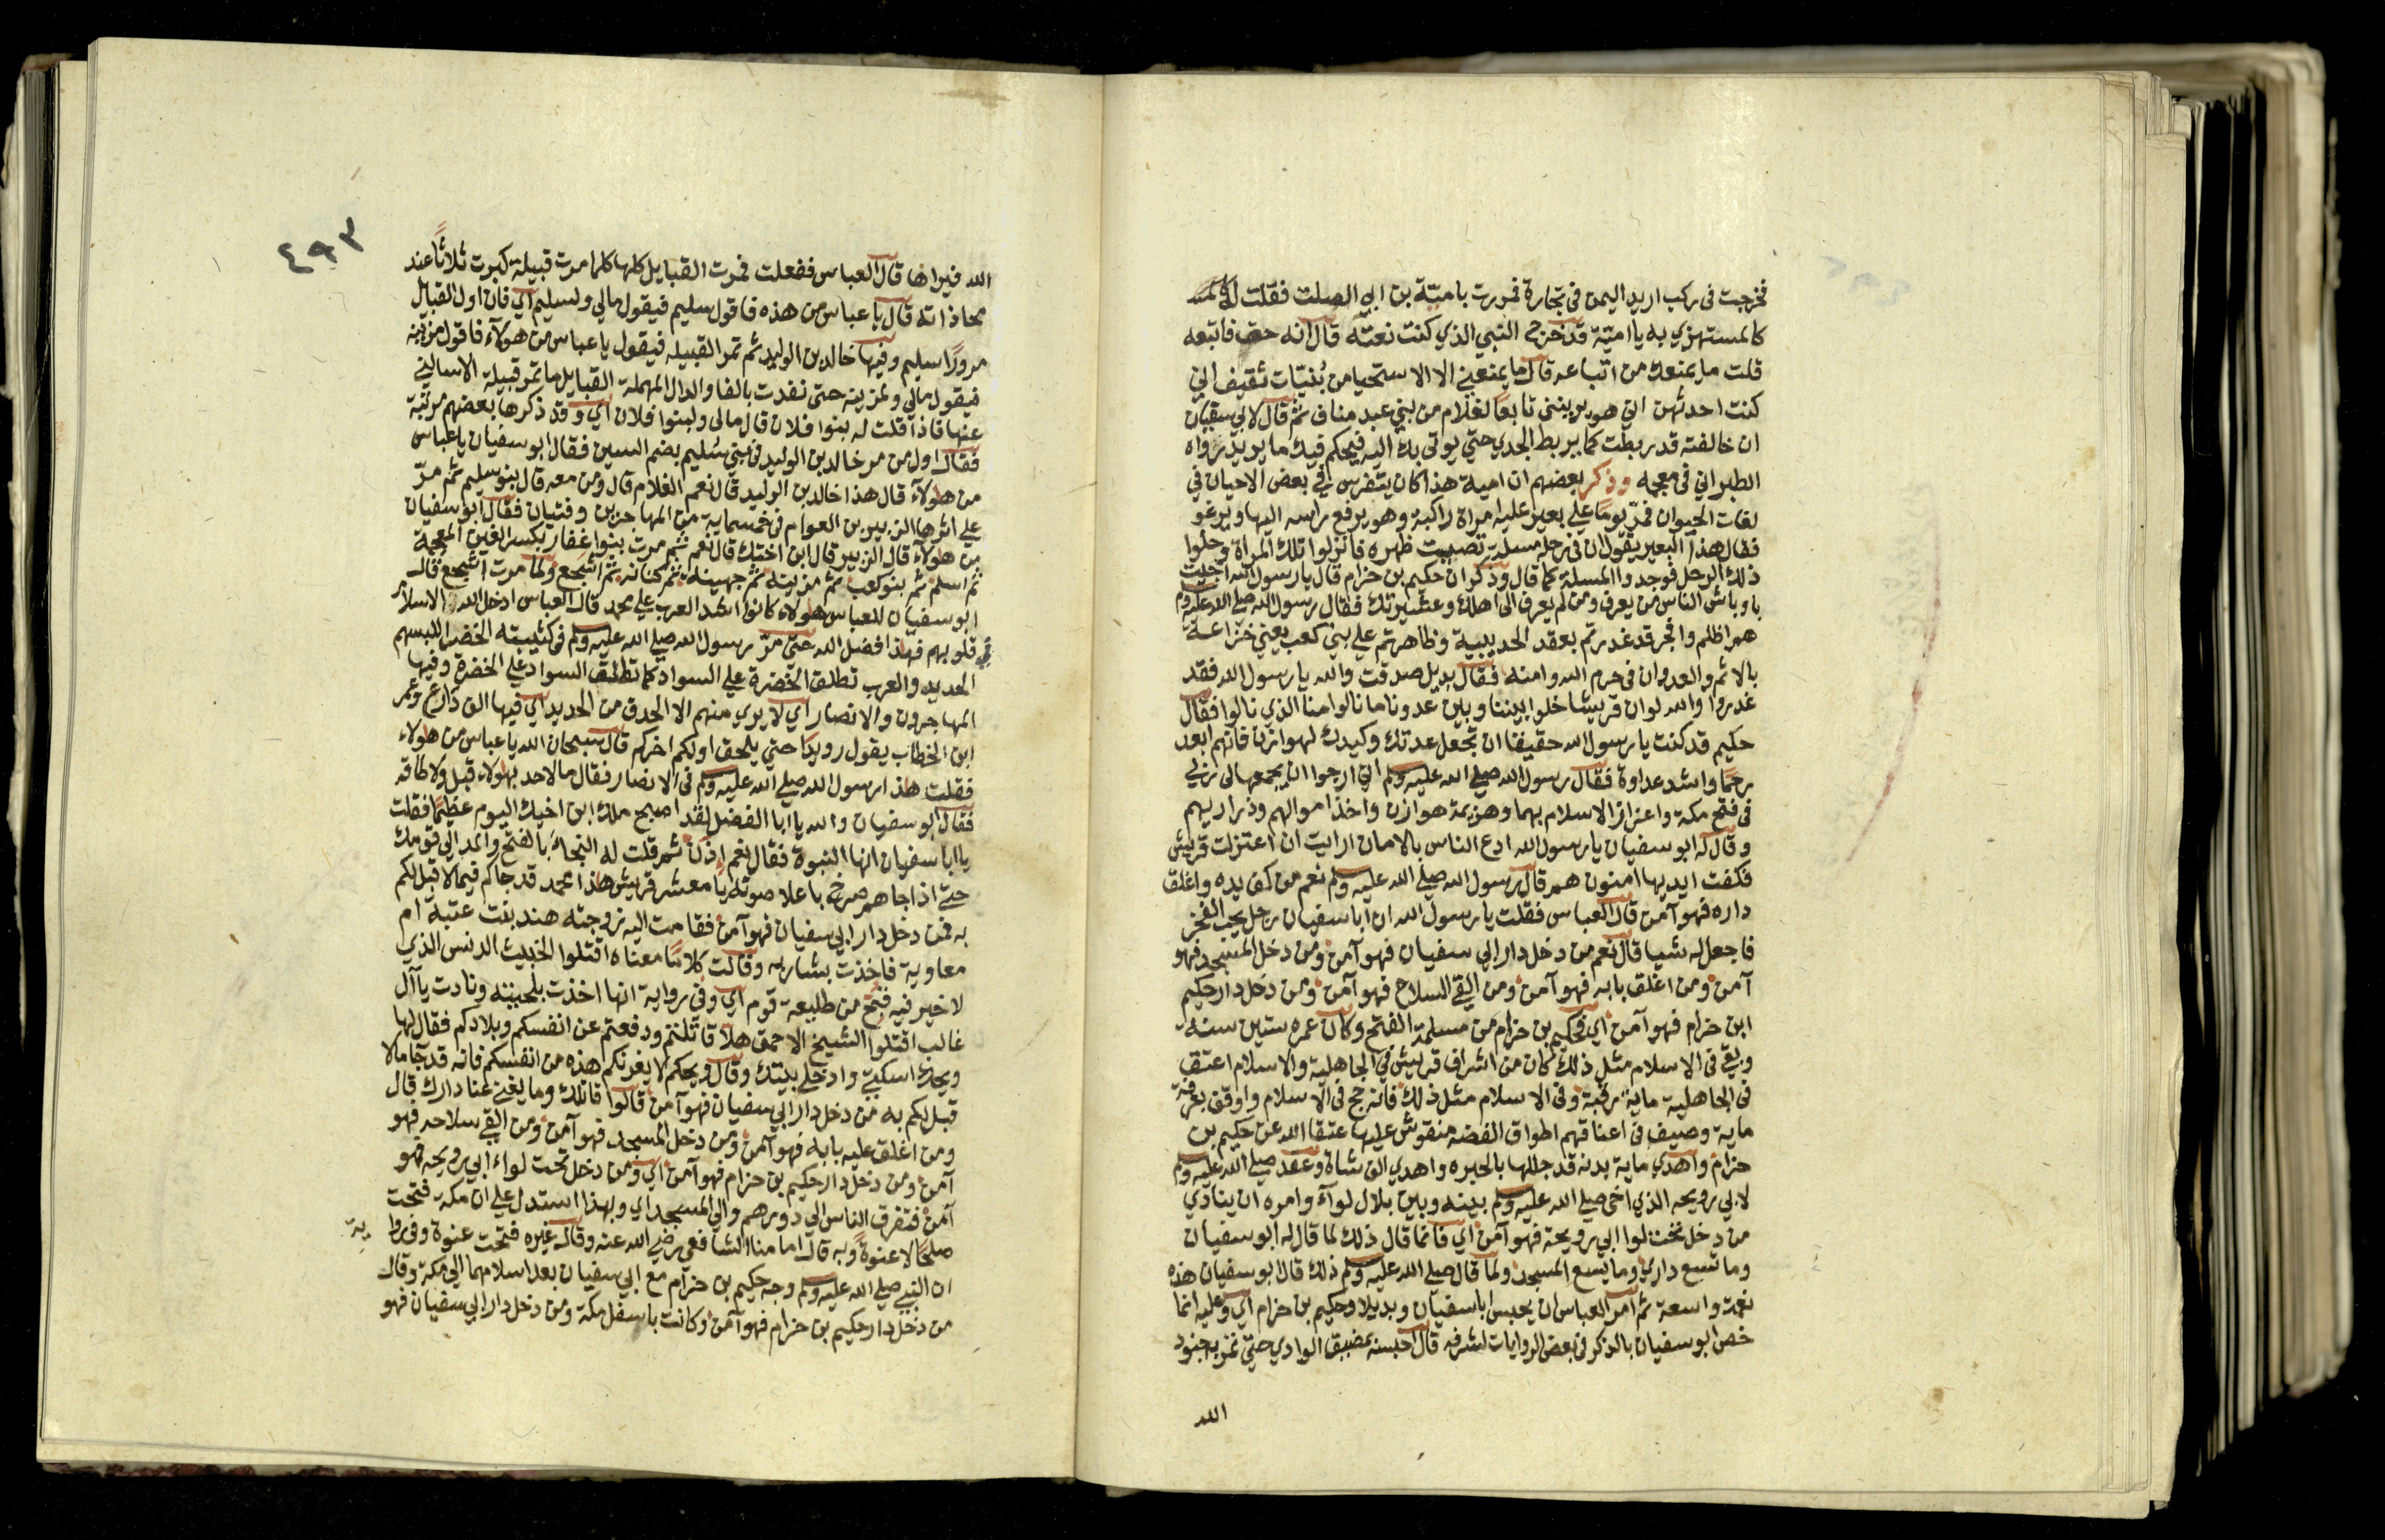 فخرجت فى ركب اريد اليمن فى تجارة فمررت بامية بن ابي الصلت فقلت له
كالمستهزي به يا امية قد خرج النبي الذي كنت تنعته قال انه حق فاتبعه
قلت ما يمنعك من اتباعه قال ما يمنعني الا الاستحيا من بُنيّات ثقيف اني
كنت احدثهن اني هو يرينني تابعا لغلام من بني عبد مناف ثم قال لابي سفيان
ان خالفته قد ربطت كما يربط الجدي حتي يوتى بك اليه فيحكم فيك ما يريد رواه
الطبراني فى معجمه وذكر بعضهم ان امية هذا كان يتفرس في بعض الاحيان في
لغات الحيوان فمرّ يوما علي بعير عليه امراة راكبة وهو يرفع راسه اليها ويرغو
فقال هذا البعير يقول ان فى رحله مسلة تصيب ظهره فانزلوا تلك المراة وحلوا
ذلك الرحل فوجدوا المسلة كما قال وذكر ان حكيم بن حزام قال يا رسول الله اجيت
باوباش الناس من يعرف ومن لم يعرف الى اهلك وعشيرتك فقال رسول الله صلي الله عليه وسلم
هم اظلم وافجر قد غدرتم بعقد الحديبية وظاهرتم علي بني كعب يعني خزاعة
بالاثم والعدوان فى حرم الله وامنه فقال بديل صدقت والله يا رسول الله فقد
غدروا والله لو ان قريشا خلوا بيننا وبين عدونا ما نالوا منا الذي نالوا فقال
حكيم قد كنت يا رسول الله حقيقا ان تجعل عدتك وكيدك لهوازن فانهم ابعد
رحما واشد عداوة فقال رسول الله صلي الله عليه وسلم اني ارجوا ان يجمعها لى ربي
فى فتح مكة واعزاز الاسلام بهما وهزيمة هوازن واخذ اموالهم وذراريهم
وقال له ابو سفيان يا رسول الله ادع الناس بالامان ارايت ان اعتزلت قريش
فكفت ايديها امنون هم قال رسول الله صلي الله عليه وسلم نعم من كف يده واغلق
داره فهو آمن قال العباس فقلت يا رسول الله ان ابا سفيان رجل يحب الفخر
فاجعل له شيا قال نعم من دخل دار ابي سفيان فهو آمن ومن دخل المسجد فهو
آمن ومن اغلق بابه فهو آمن ومن القي السلاح فهو آمن ومن دخل دار حكيم
ابن حزام فهو آمن اي وحكيم بن حزام من مسلمة الفتح وكان عمره ستين سنه
وبقي فى الاسلام مثل ذلك كان من اشراف قريش في الجاهلية والاسلام اعتق
فى الجاهلية ماية رقبة وفى الاسلام مثل ذلك فانه حج فى الاسلام واوقف بعرفة
ماية وصيف فى اعناقهم اطواق الفضه منقوش عليها عتقا الله عن حكيم بن
حزام واهدي ماية بدنه قد جللها بالحبره واهدي الف شاة وعقد صلي الله عليه وسلم
لابي رويحه الذي اخى صلي الله عليه وسلم بينه وبين بلال لوآء وامره ان ينادي
من دخل تحت لوا ابي رويحة فهو آمن اي فانما قال ذلك لما قال له ابو سفيان
وما تسع داري وما يسع المسجد ولما قال صلي الله عليه وسلم ذلك قال ابو سفيان هذه
نعمة واسعة ثم امر العباس ان يحبس ابا سفيان وبديلا وحكيم بن حزام اي وعليه انما
خص ابو سفيان بالذكر فى بعض الروايات لشرفه قال احبسه بمضيق الوادي حتي تمر به جنود
الله
٤٩٣
الله فيراها قال العباس ففعلت فمرت القبايل كلها كلما مرت قبيلة كبرت ثلاثًا عند
محاذاته قال يا عباس من هذه فاقول سليم فيقول مالي ولسليم اي فان اول القبايل
مرورًا سليم وفيها خالد بن الوليد ثم تمر القبيله فيقول يا عباس من هولآء فاقول مزينه
فيقول مالي ولمزينه حتى نفدت بالفا والدال المهملة القبايل ما تمر قبيلة الا سالني
عنها فاذا قلت له بنوا فلان قال مالى ولبنوا فلان اي وقد ذكرها بعضهم مرتبة
فقال اول من مر خالد بن الوليد فى بني سُليم بضم السين فقال ابو سفيان يا عباس
من هولآء قال هذا خالد بن الوليد قال نعم الغلام قال ومن معه قال بنو سليم ثم مرّ
علي اثرها الزبير بن العوام فى خمسماية من المهاجرين وفتيان فقال ابو سفيان
من هولآء قال الزبير قال ابن اختك قال نعم ثم مرت بنوا غفار بكسر الغين المعجمة
ثم اسلم ثم بنو كعب ثم مزينة ثم جهينة ثم كنانه ثم اشجع ولما مرت اشجع قال
ابو سفيان للعباس هولاء كانوا اشد العرب علي محمد قال العباس ادخل الله الاسلام
في قلوبهم فهذا فضل الله حتى مرّ رسول الله صلي الله عليه وسلم فى كتيبته الخضرا للبسهم
الحديد والعرب تطلق الخضرة علي السواد كما تطلق السواد علي الخضرة وفيها
المهاجرون والانصار اي لا يري منهم الا الحدق من الحديد اي فيها الف دارع وعمر
ابن الخطاب يقول رويدا حتي يلحق اولكم اخركم قال سبحان الله يا عباس من هولاء
فقلت هذا رسول الله صلي الله عليه وسلم فى الانصار فقال ما لاحد بهولاء قبل ولا طاقه
فقال ابو سفيان والله يا ابا الفضل لقد اصبح ملك ابن اخيك اليوم عظيما فقلت
يا ابا سفيان انها النبوة فقال نعم اذن ثم قلت له النجاءَ بالفتح والمد الي قومك
حتي اذا جاهم صرخ باعلا صوته يا معشر قريش هذا محمد قد جاكم فيما لا قبل لكم
به فمن دخل دار ابي سفيان فهو آمن فقامت اليه زوجته هند بنت عتبة ام
معاوية فاخذت بشاربه وقالت كلاما معناه اقتلوا الخبيث الدنس الذي
لا خير فيه قبح من طليعة قوم اي وفى رواية انها اخذت بلحيته ونادت يا آل
غالب اقتلوا الشيخ الاحمق هلا قاتلتم ودفعتم عن انفسكم وبلادكم فقال لها
ويحك اسكتي وادخلي بيتك وقال ويحكم لا يغرنكم هذه من انفسكم فانه قد جآ ما لا
قبل لكم به من دخل دار ابي سفيان فهو آمن قالوا قاتلك وما يغني عنا دارك قال
ومن اغلق عليه بابه فهو آمن ومن دخل المسجد فهو آمن ومن القي سلاحه فهو
آمن ومن دخل دار حكيم بن حزام فهو آمن اي ومن دخل تحت لواء ابي رويحه فهو
آمن فتفرق الناس الي دورهم والي المسجد اي وبهذا استدل علي ان مكة فتحت
صلحًا لا عنوة وبه قال امامنا الشافعي رضي الله عنه وقال غيره فتحت عنوة وفى رواية
ان النبي صلي الله عليه وسلم وجه حكيم بن حزام مع ابي سفيان بعد اسلامهما الي مكة وقال
من دخل دار حكيم بن حزام فهو آمن وكانت باسفل مكة ومن دخل دار ابي سفيان فهو